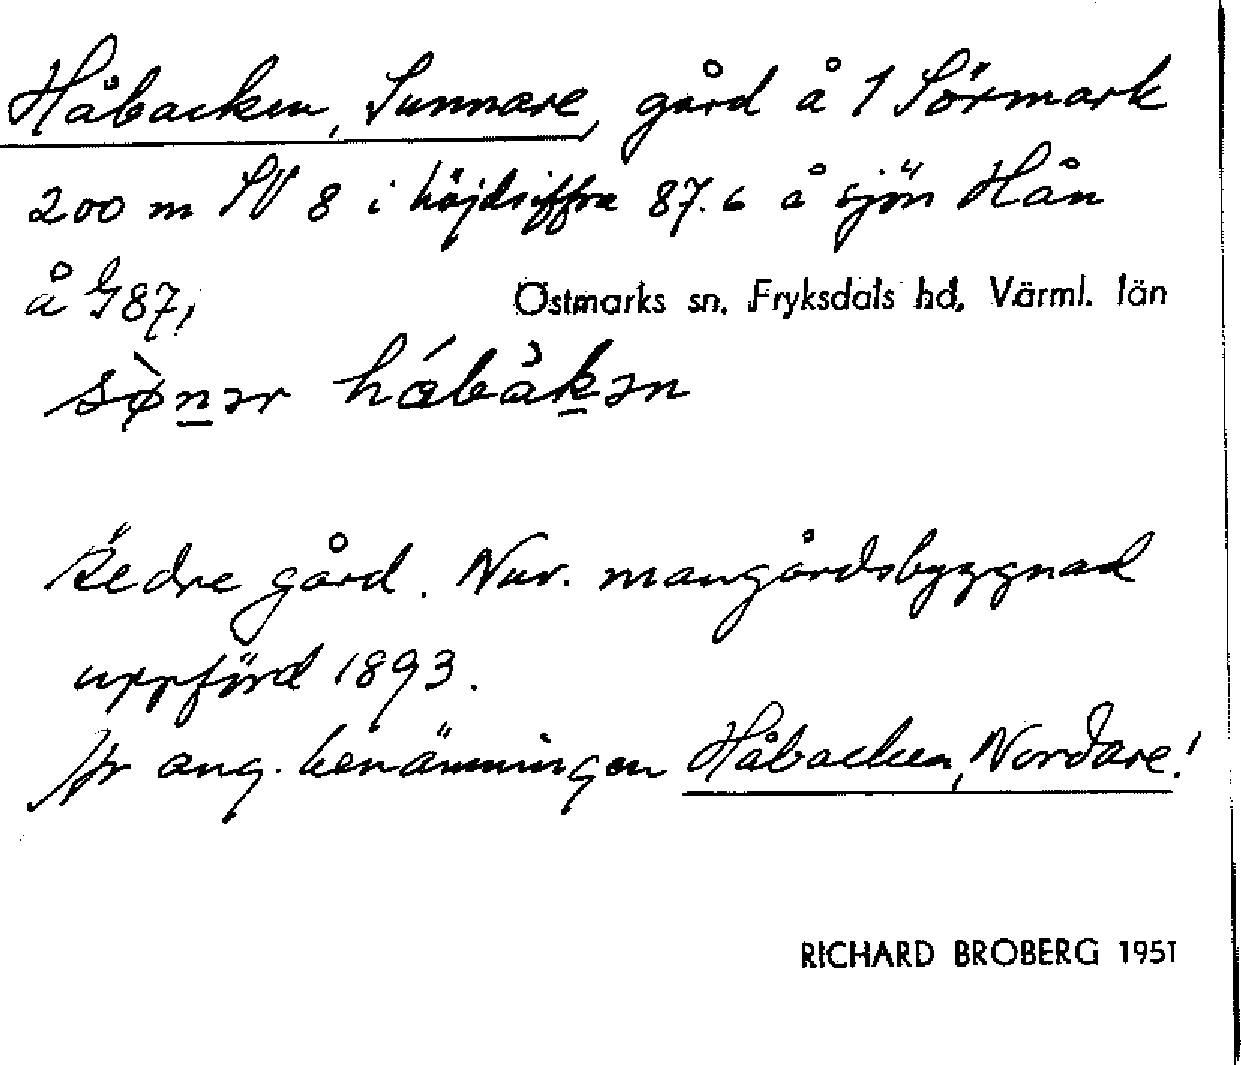 Håbacken, Sunnare, gård å 1 Sörmark
200 m SV 8 i höjdsiffra 87.6 å sjön Hån
å G87, Östmarks sn, Fryksdals hd, Värml. län
sø̀nər hábàkən
Äedre gård. Nuv. mangårdsbyggnad
uppförd 1893.
Jfr ang. benämningen Håbacken, Nordare!
RICHARD BROBERG 1951